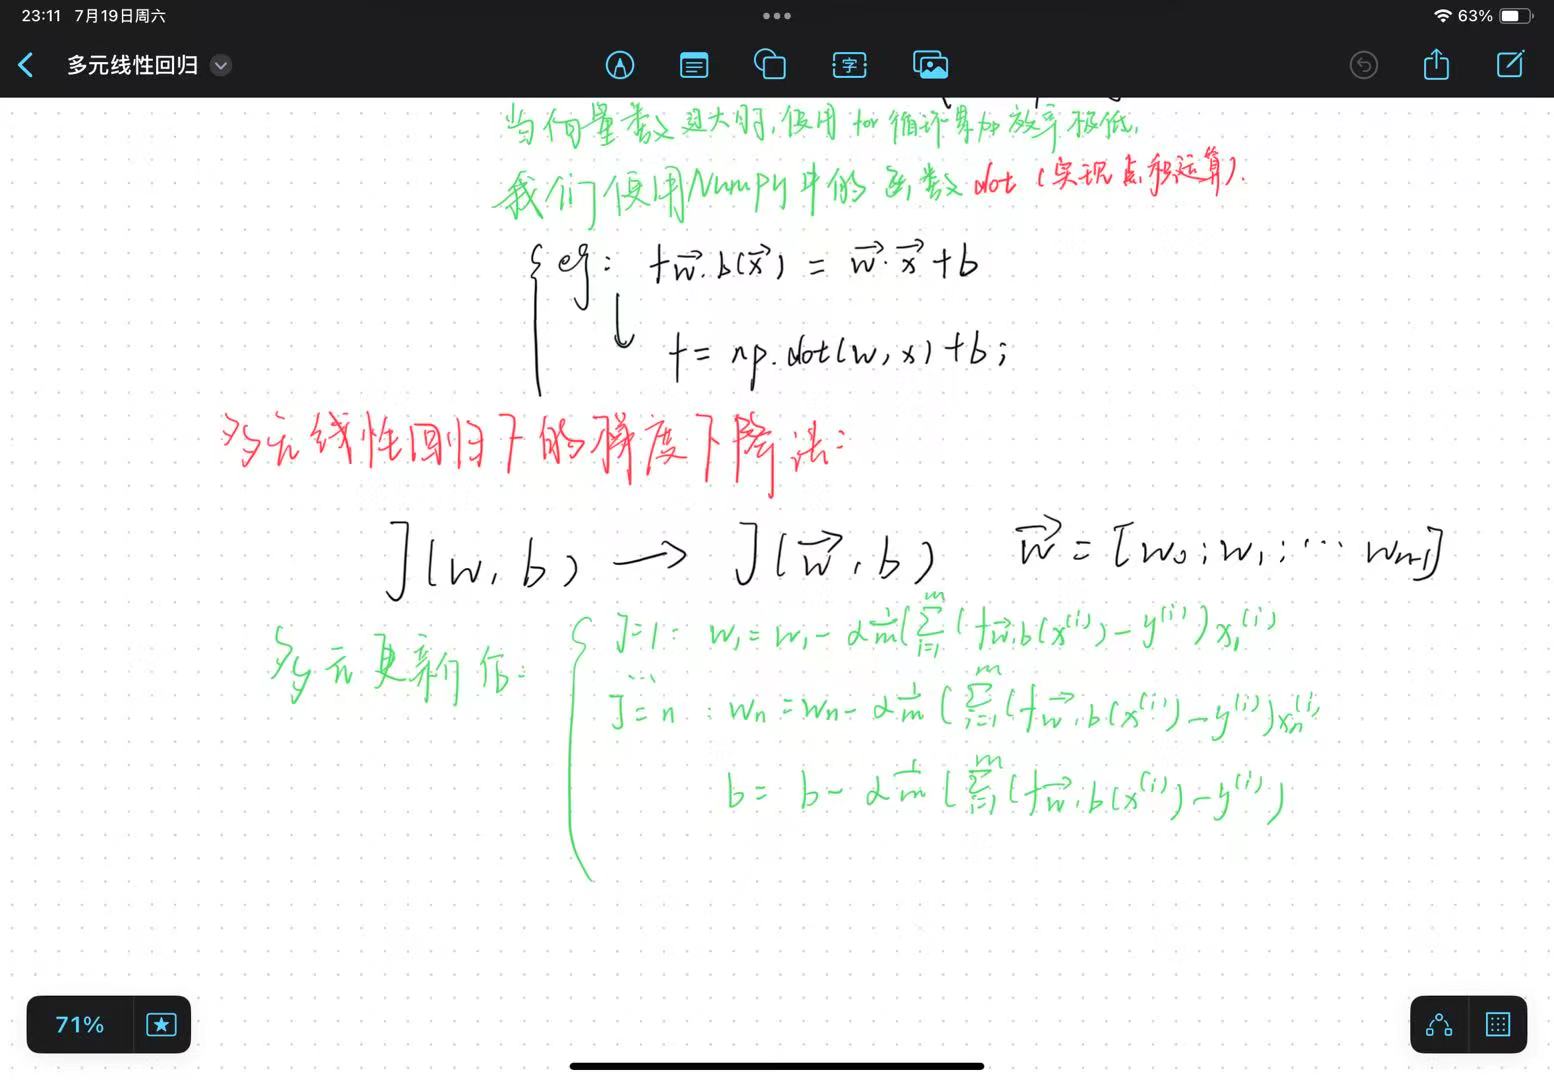 23:11 7月19日周六
63%
多元线性回归
字
当向量数过大时,使用 for 循环累加效率极低,
我们使用Numpy中的函数dot(实现点积运算).
eg: f w⃗.b(x⃗) = w⃗·x⃗+b
↓
f= np.dot(w,x)+b;
多元线性回归下的梯度下降法:
J(w,b) → J(w⃗,b) w⃗=[w₀;w₁;⋯ wₙ₋₁]
多元更新值: J=1: w₁=w₁-α 1/m(∑ᵢ₌₁ᵐ(f w⃗.b(x⁽ⁱ⁾)-y⁽ⁱ⁾)x₁⁽ⁱ⁾
...
J=n: wₙ=wₙ-α 1/m(∑ᵢ₌₁ᵐ(f w⃗.b(x⁽ⁱ⁾)-y⁽ⁱ⁾)xₙ⁽ⁱ⁾
b= b-α 1/m(∑ᵢ₌₁ᵐ(f w⃗.b(x⁽ⁱ⁾)-y⁽ⁱ⁾)
71%